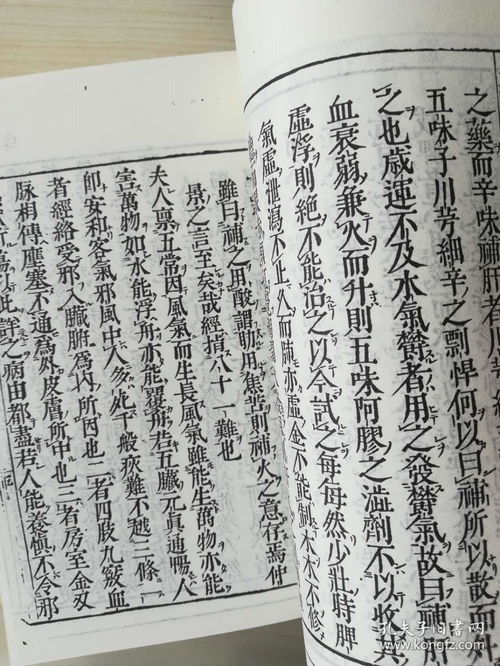 之藥而辛味補肝者川芎細辛
五味子川芎細辛之剽悍何以曰補所以散而
之也歲運不及水氣鬱者用之發鬱氣故曰補
血衰弱兼火而升則五味阿膠之澁劑不以收其
虛浮則絶不能治之以今試之每每然少壯時脾
氣虛泄瀉不止久而肺亦虛金不能制木木不條
雖曰補之用酸謂助用焦苦則補火之意存焉仲
景之言至矣哉經指八十一難也
夫人禀五常因風氣而生長風氣雖能生萬物亦能
害萬物如水能浮舟亦能覆舟若五臟元眞通暢人
即安和客氣邪風中人多死千般疢難不越三條一
者經絡受邪入臟腑爲內所因也二者四肢九竅血
脉相傳壅塞不通爲外皮膚所中也三者房室金刄
以此詳之病由都盡若人能養愼不令邪
孔夫子旧书网
kongfz.com